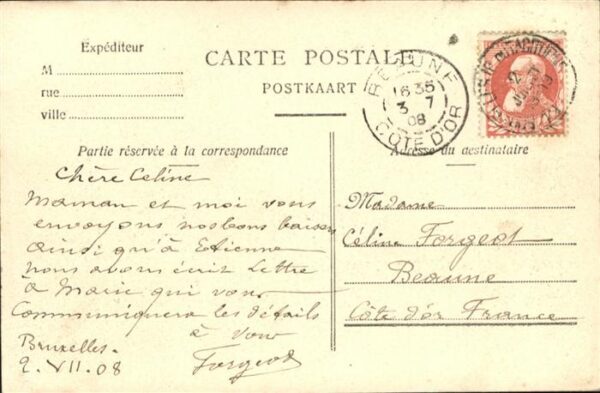 Expéditeur
M
rue
ville
CARTE POSTALE
POSTKAART
BEAUNE
16 35
3 7
08
COTE D'OR
Partie réservée à la correspondance
Adresse du destinataire
Chère Celine
Maman et moi vous
envoyons nos bons baisers
ainsi qu'à Etienne
nous avons écrit Lettre
a Marie qui vous
Communiquera les détails
à vous
Forgeot
Bruxelles.
2.VII.08
Madame
Céline Forgeot
Beaune
Côte d'or France